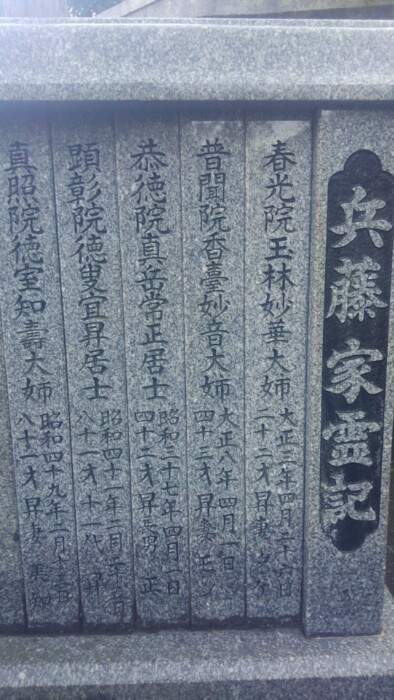 兵藤家霊記
春光院玉林妙華大姉
大正三年四月二十六日
二十二才昇妻
普聞院香臺妙音大姉
大正八年四月一日
四十三才昇妻
恭徳院真岳常正居士
昭和二十七年四月一日
四十二才昇三男 正
顕彰院徳叟宜昇居士
昭和四十一年二月
八十一才十一代 昇
真照院徳室知壽大姉
昭和四十九年二月十三日
八十一才昇妻 美知